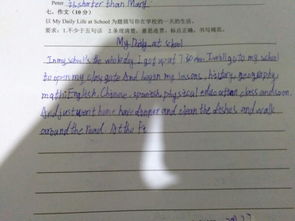 Peter is shorter than Mary.
七、作文（10分）
以 My Daily Life at School 为题描写你在学校的一天的生活。
要求：1.不少于五句话 2.条理清楚，意思连贯，标点正确，书写规范。
My Daily at school
In my school's the whole day. I got up at 7 I will go to my school
to open my class gate And began my lessons, history, geography
math English, Chinese, spanish, physical education class and soon.
And just went home have danper and clean the dishes and walk
around the road. At the